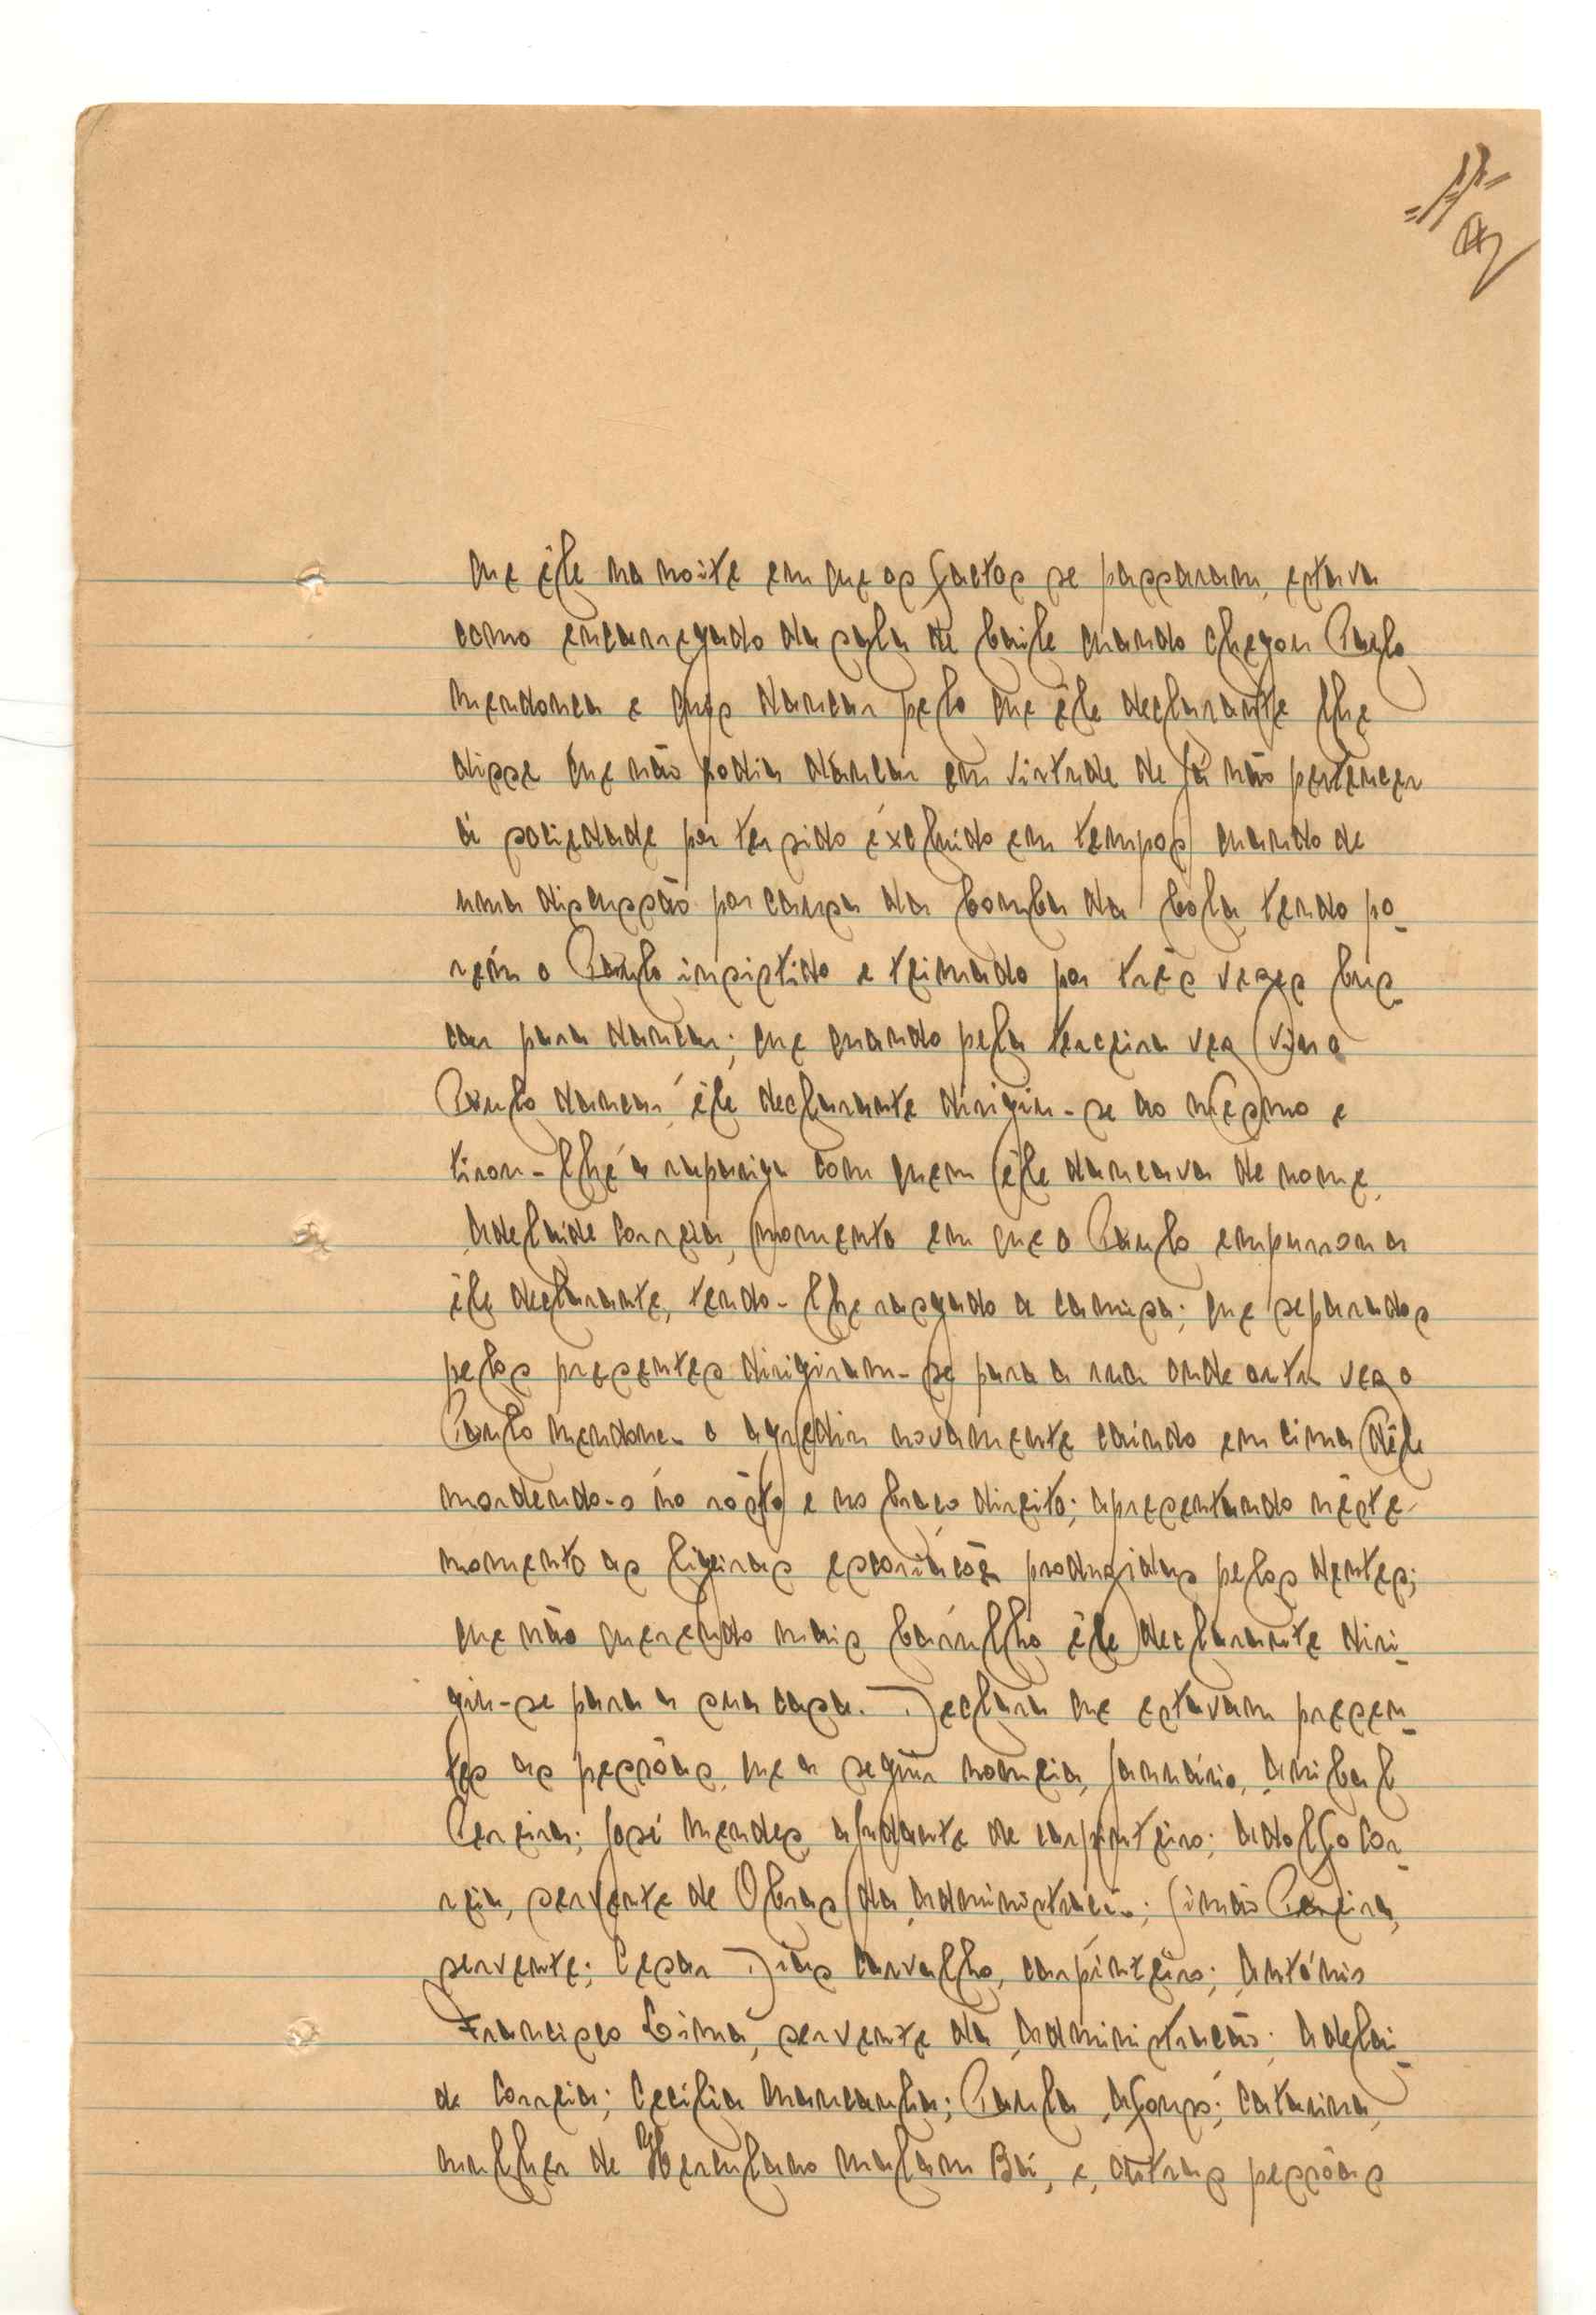 =11=
que êle na noite em que os factos se passaram, estava
como encarregado da sala de baile quando chegou Paulo
Mendonca e quis dancar pelo que êle declarante lhe
disse que não podia dancar em virtude de já não pertencer
á sociedade por ter sido excluido em tempos quando de
uma discussão por causa da bomba da bola, tendo po-
rém o Paulo insistido e teimado por três vezes bus-
car para dancar; que quando pela terceira vez vira o
Paulo dancar êle declarante dirigiu-se ao mesmo e
tirou-lhe a rapariga com quem êle dancava de nome,
Adelaide Correia, momento em que o Paulo empurrou a
êle declarante, tendo-lhe rasgado a camisa; que separados
pelos presentes dirigiram-se para a rua onde outra vez o
Paulo Mendonca o agrediu novamente caindo em cima dêle
mordendo-o no rôsto e no braco direito; apresentando nêste
momento as ligeiras escoriacões produzidas pelos dentes;
que não querendo mais barulho êle declarante diri-
giu-se para a sua casa. Declara que estavam presen-
tes as pessôas, que a seguir nomeia, Januário, Anibal
Pereira; José Mendes, ajudante de carpinteiro; Adolfo Cor-
reia, servente de Obras da Administracão; Simão Pereira,
servente; Cesar Dias Carvalho, carpinteiro; António
Francisco Lima, servente da Administracão; Adelai-
de Correia; Cecilia Mancanha; Paula Afonso; Catarina,
mulher de Herculano Malam Bá, e, outras pessôas